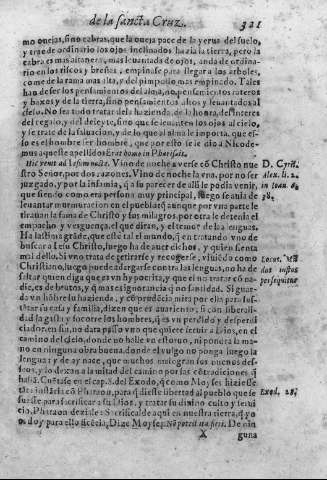 de la sancta Cruz. 321
mo ouejas, sino cabras, que la oueja pace de la yerua del suelo,
y trae de ordinario los ojos inclinados hazia la tierra, pero la
cabra es mas altanera, mas leuantada de ojos, anda de ordina-
rio en los riscos y breñas, empinase para llegar a los arboles,
come de la rama mas alta, y del pimpollo mas empinado. Tales
han de ser los pensamientos del alma, no pensamientos rateros
y baxos y de la tierra, sino pensamientos altos y leuantados al
cielo. No sea todo tratar de la hazienda, de la honra, de
del regalo, y del deleyte, sino que se leuanten los ojos al cielo,
y se trate de la saluacion, y de lo que al alma le importa, que es-
so es el hombre ser hombre, que por esto se le dio a Nicode-
mus aqueste apellido Erat homo in Phariseis.
Hic venit ad Iesum nocte. Vino de noche a verse cō Christo nue
stro Señor, por dos razones. Vino de noche la vna, por no ser
juzgado, y por la infamia, q̃ a su parecer de alli le podia venir,
que siendo como era persona muy principal, luego se auia de
leuantar murmuracion en el pueblo: q̃ aunque por vna parte le
tirauan la fama de Christo y sus milagros, por otra le detenia el
empacho y verguença, el que diran, y el temor de las lenguas.
Ha lastima grāde, que este tal el mundo, q̃ en tratando vno de
buscar a Iesu Christo, luego ha de auer dichos, y quien sienta
mal dello. Si vno trata de retirarse y recogerse, viuiēdo como
Christiano, luego puede adargarse contra las lenguas, no ha de
faltar quien diga que es vn hypocrita, y que el no tratar cō na-
die, es de bruto, y q̃ mas es ignorancia que santidad. Si guar-
da vn hōbre su hazienda, y cō prudēcia mira por ella para sus-
tētar su casa y familia, dizen que es auariento; si con liberali-
dad la gasta y socorre los hombres, q̃ es vn perdido y desperdi-
ciador. en fin, no dara passo vno que quiere seruir a Dios, en el
camino del cielo, donde no halle vn estoruo, ni pondra la ma-
no en ninguna obra buena, donde el vulgo no ponga luego la
lengua: y de ay nace, que muchos malogran sus buenos des-
seos, y lo dexan a la mitad del camino por las cōtradiciones q̃
hallā. Cuētase en el cap. 8. del Exodo, q̃ como Moyses hiziesse
instancia cō Pharaon, para q̃ diesse libertad al pueblo que se
fuesse para sacrificar a su Dios, y tratar su diuino culto y serui
cio. Pharaon dezia le: Sacrificalde aqui en nuestra tierra, q̃ yo
os doy para ello licēcia. Dize Moyses: Nō potest ita fieri. De nin
X guna
D. Cyril.
Alex. li. 2.
in Ioan. c.
38.
persequitur.
Exod. 28.